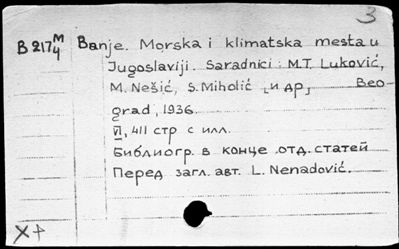 3
B 217 M/4
Banje. Morska i klimatska mesta u
Jugoslaviji. Saradnici: M.T. Luković,
M. Nešić, S. Miholić [и др] Beo
grad, 1936.
VI, 411 стр с илл.
Библиогр. в конце отд. статей
Перед загл. авт. L. Nenadović.
X+